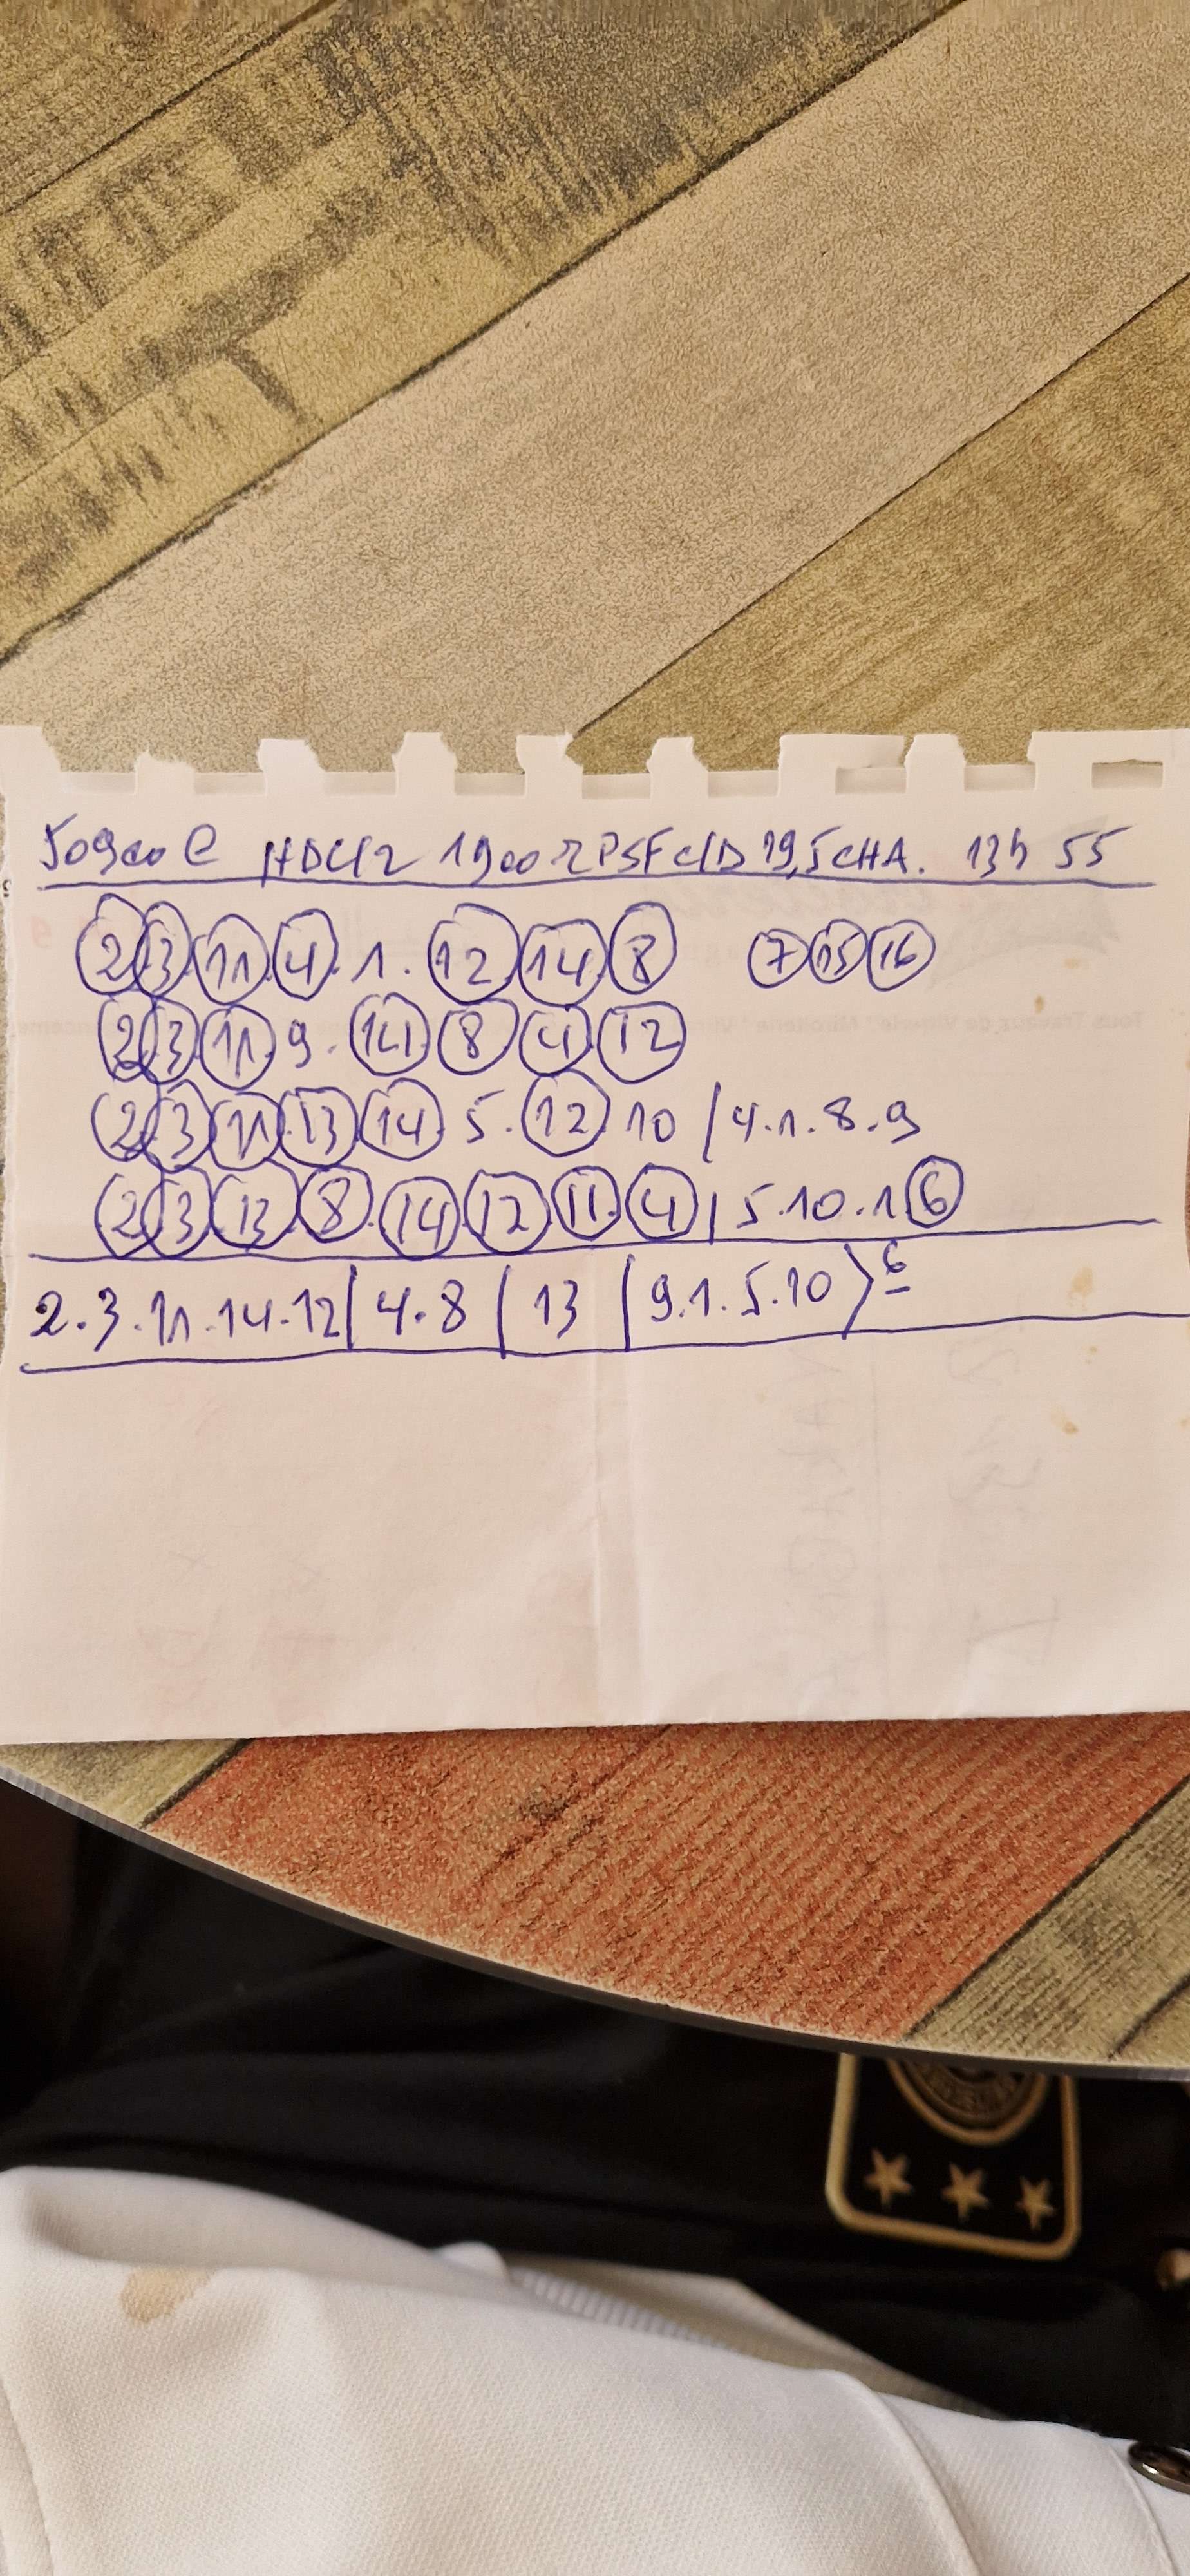 50900 € HDC/2 1900 2 PSF C/D 19,5 CHA. 13h 55
2 3 11 4. 1. 12 14 8 7 15 16
2 3 11 9. 14 8 4 12
2 3 11 13 14 5. 12 10 / 4.1.8.9
2 3 13 8. 14 12 11 4 / 5.10.1 6
2.3.11.14.12 / 4.8 / 13 / 9.1.5.10 > 6